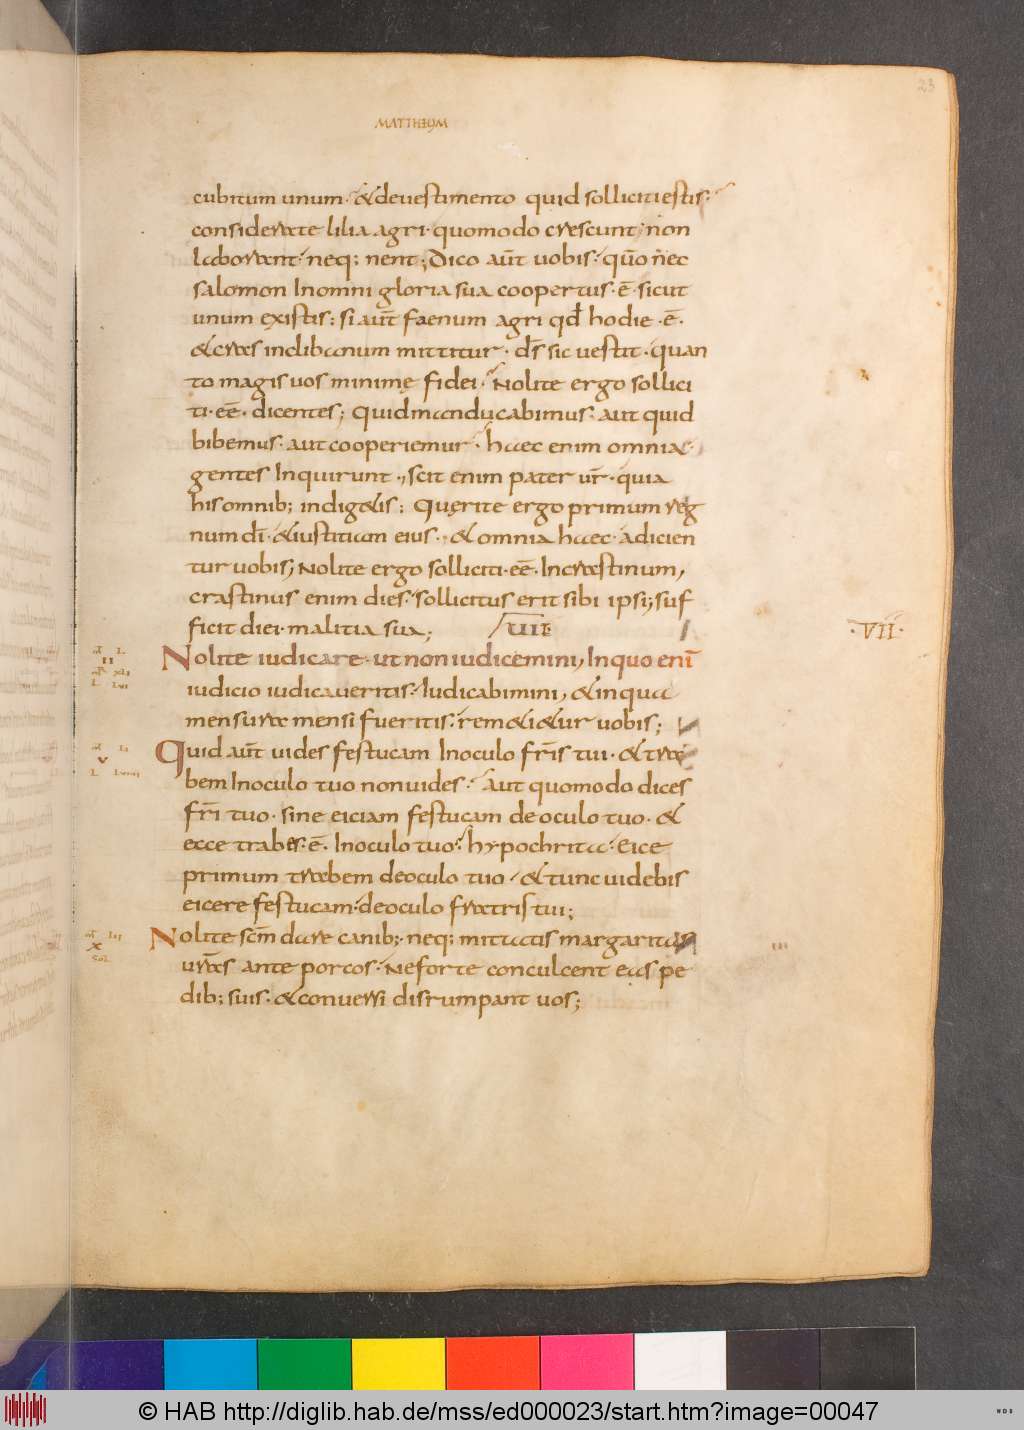 23
MATTHEUM
cubitum unum· & deuestimento quid solliciti estis·
considerate lilia agri· quomodo crescunt; non
laborant· neq; nent; Dico aut̄ uobis· qūo nec
salomon In omni gloria sua coopertus· ē· sicut
unum ex istis: si aut̄ faenum agri qđ hodie· ē·
& cras in clibanum mittitur· d̄s sic uestit· quan
to magis uos minimę fidei· Nolite ergo sollici
ti· eē· dicentes; Quid manducabimus· aut quid
bibemus· aut cooperiemur· haec enim omnia·
gentes Inquirunt·, scit enim pater ur̄· quia
his omnib; indigetis; Quęrite ergo primum reg
num dī· & iustitiam eius·, & omnia haec· adicien
tur uobis; Nolite ergo solliciti· eē· In crastinum,
crastinus enim dies· sollicitus erit sibi ipsi; suf
ficit diei· malitia sua; UII·
·VII·
Nolite iudicare· ut non iudicemini, In quo enī
iudicio iudicaueritis· Iudicabimini, & in qua
mensura mensi fueritis· remetietur uobis;
Quid aut̄ uides festucam In oculo fr̄is tui· & tra
bem In oculo tuo non uides· Aut quomodo dices
fr̄i tuo· sine eiciam festucam de oculo tuo· &
ecce trabes· ē· In oculo tuo· hypochrita· Eice
primum trabem de oculo tuo· & tunc uidebis
eicere festucam· de oculo fratris tui;
Nolite sc̄m dare canib;· neq; mittatis margaritas
uras ante porcos· Ne forte conculcent eas pe
dib; suis· & conuersi disrumpant uos;
© HAB http://diglib.hab.de/mss/ed000023/start.htm?image=00047